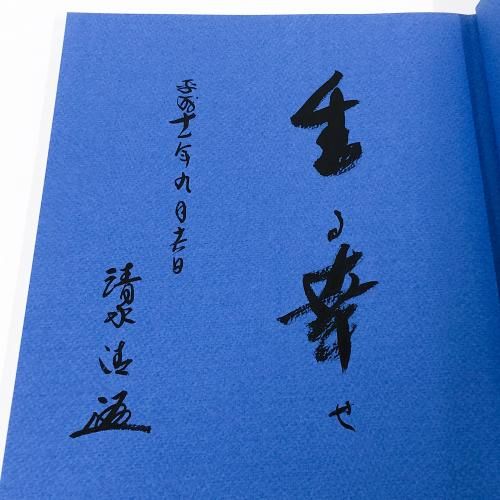 生る幸せ
平成十一年九月日
清水清